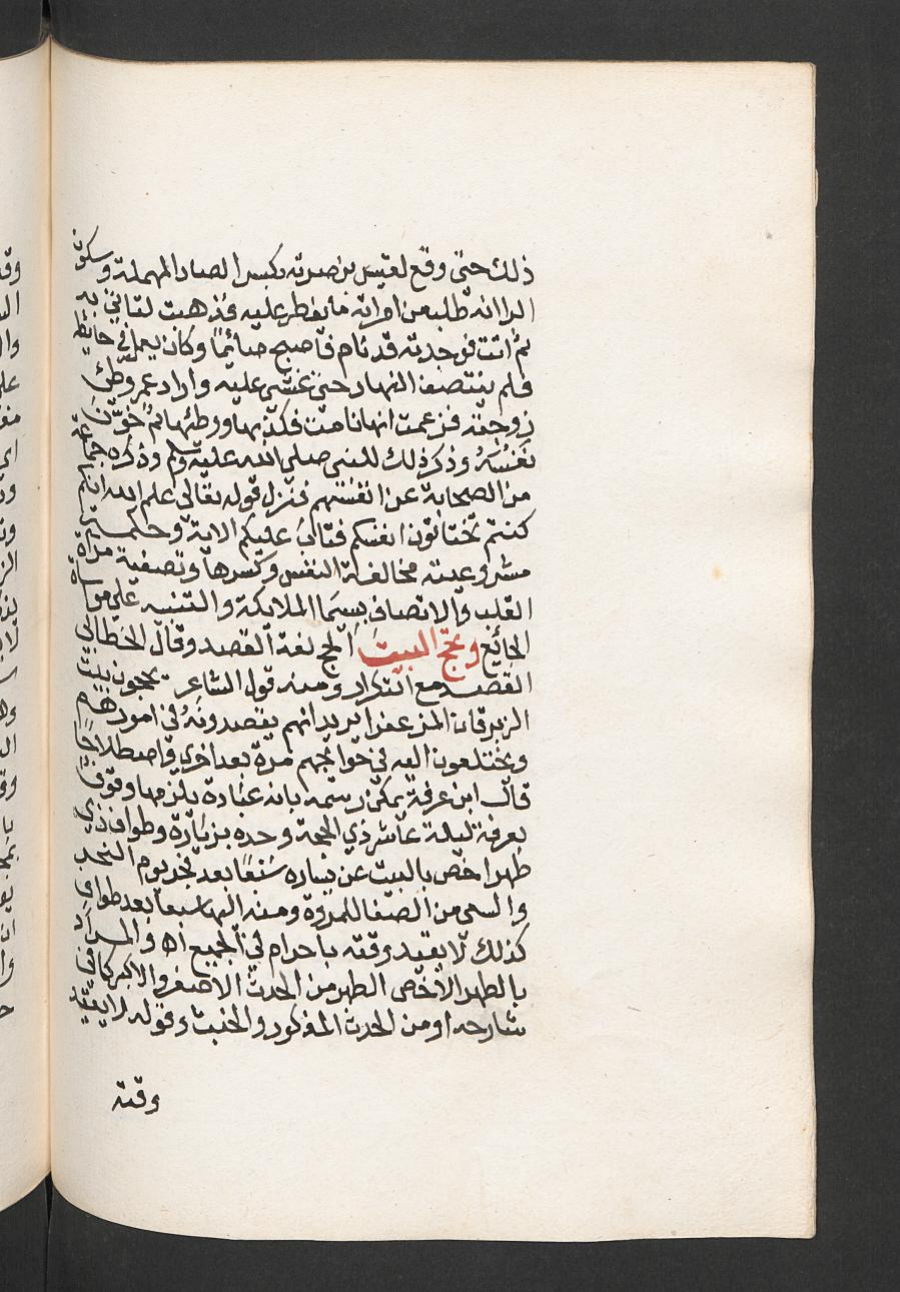 ذلك حتى وقع لقيس بن صرمة بكسر الصاد المهملة وسكون
الرا انه طلب من امراته ما يفطر عليه فذهبت لتاتي به
ثم اتت فوجدته قد نام فاصبح صائمًا وكان يعمل في حايط
فلم ينتصف النهار حتى غشي عليه واراد عمر وطئ
زوجته فزعمت انها نامت فكذبها ووطئها ثم خوّن
نفسَهُ وذكر ذلك للنبي صلى الله عليه وسلم وذكره جماعة
من الصحابة عن انفسهم فنزل قوله تعالى علم الله انكم
كنتم تختانون انفسكم فتاب عليكم الاية وحكمة
مشروعيته مخالفة النفس وكسرها وتصفية مراة
القلب والاتصاف بسيما الملايكة والتنبيه على مواساة
الجائع وحج البيت الحج لغة القصد وقال الخطابي
القصد مع التكرار ومنه قول الشاعر يحجون بيت
الزبرقان المزعفرا يريد انهم يقصدونَهُ في امورهم
ويختلفون اليه في حوائجهم مرة بعد اخري واصطلاحًا
قال ابن عرفة يمكن رسمه بانه عبادة يلزمها وقوف
بعرفة ليلة عاشر ذي الحجة وحده بزيارة وطواف ذي
طهر اخص بالبيت عن يساره سَبْعًا بعد فجر يوم النحر
والسعي من الصفا للمروة ومنه اليها سبعا بعد طواف
كذلك لا يقيد وقته باحرام في الجميع اه والمراد
بالطهر الاخص الطهر من الحدث الاصغر والاكبر كما في
شارحه او من الحدث المذكور والخبث وقوله لا يقيد
وقته